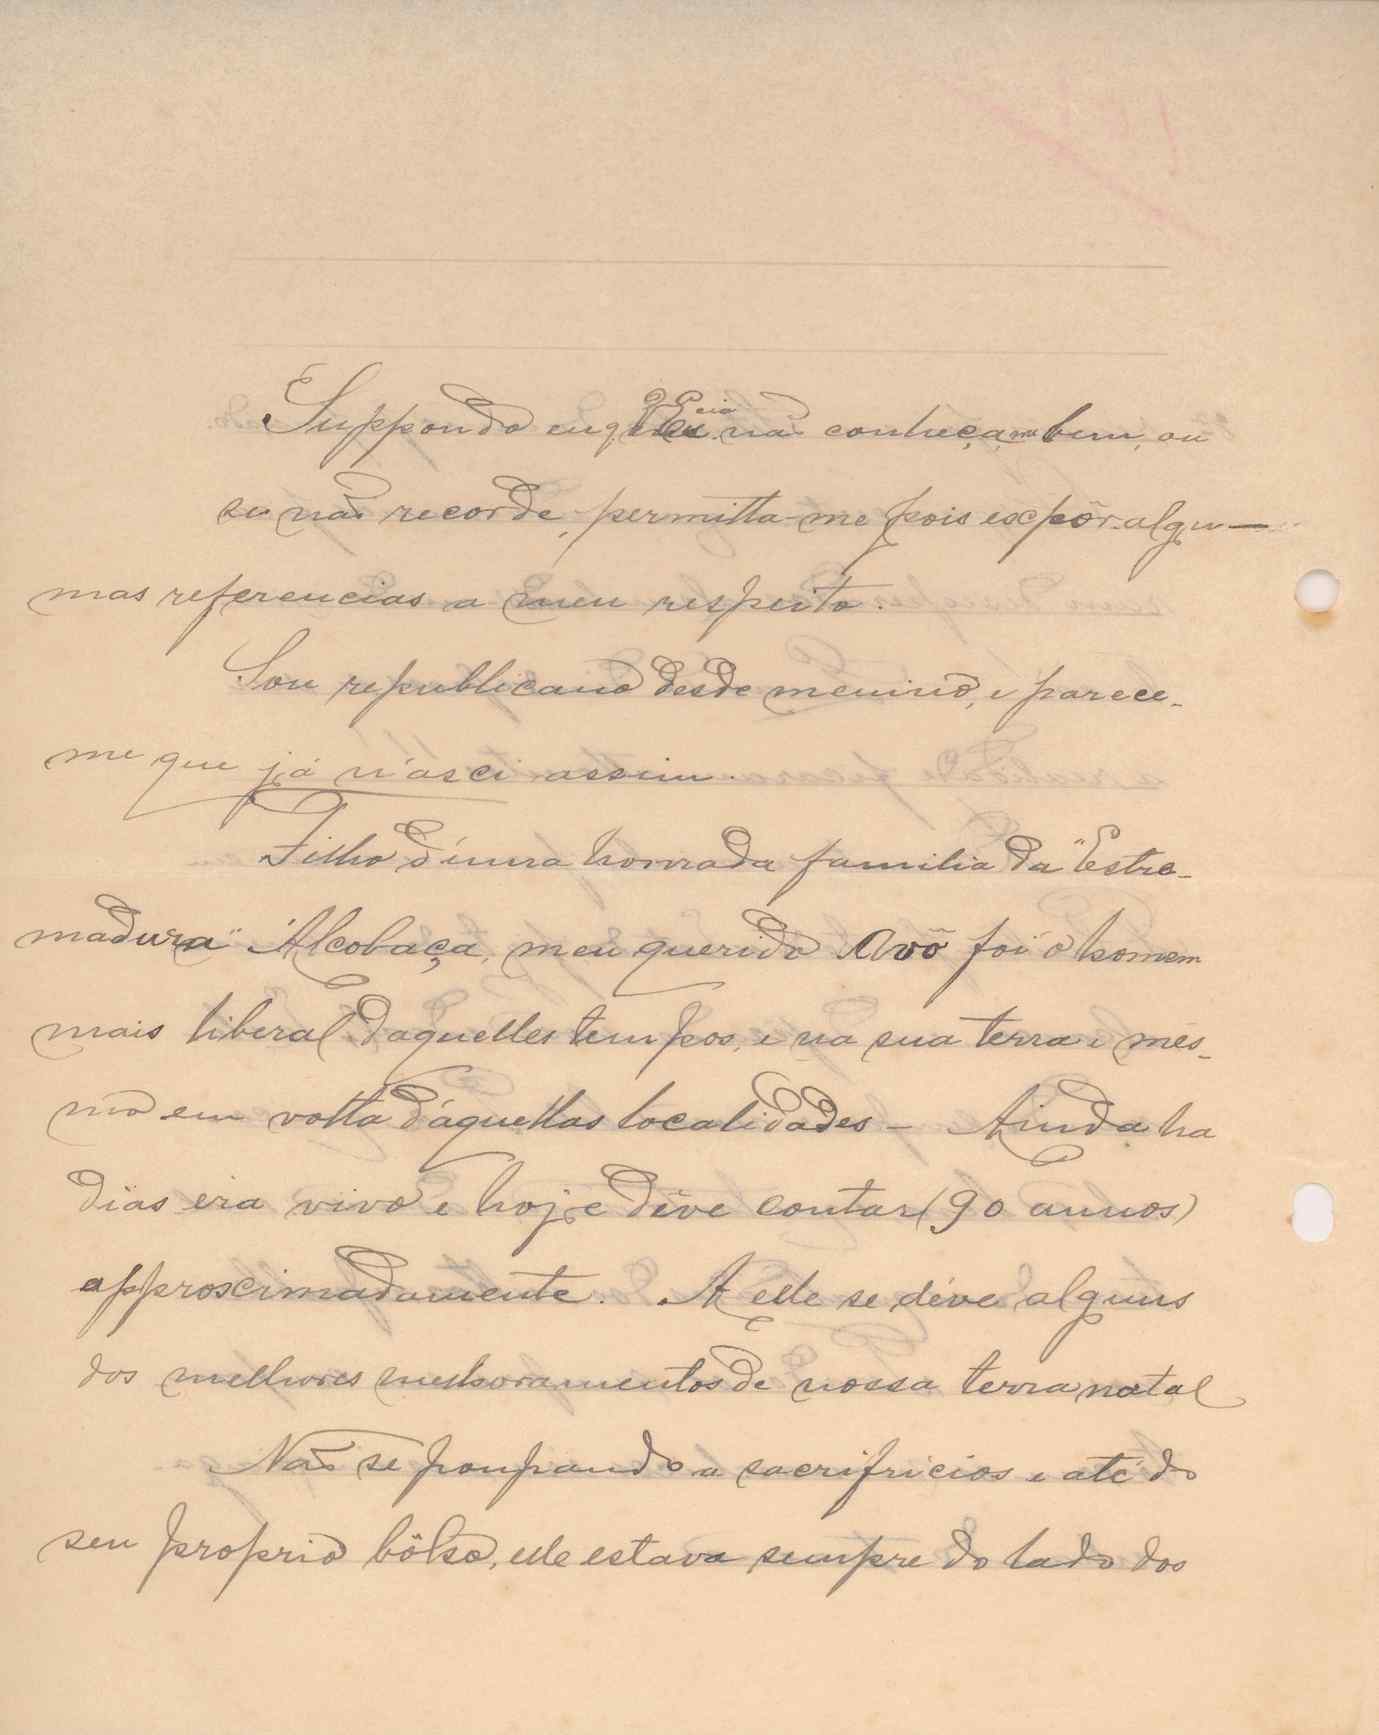 Suppondo eu q. V. Ex.cia não conheça-me bem, ou
se não recorde, permitta-me pois escpôr algu-
mas referencias a meu respeito.
Sou republicano desde menino, e parece-
me que já n'asci assim.
Filho d'uma honrada familia da "Estre-
madura" Alcobaça, meu querido Avô foi o homem
mais liberal daquelles tempos, e na sua terra e més-
mo em volta d'áquellas localidades — Ainda ha
dias era vivo e hoje déve contar (90 annos)
approscimadamente. A elle se déve alguns
dos melhores melhoramentos de nossa terra natal
Não se poupando a sacrifricios e até do
seu proprio bôlso, elle estava sempre do lado dos